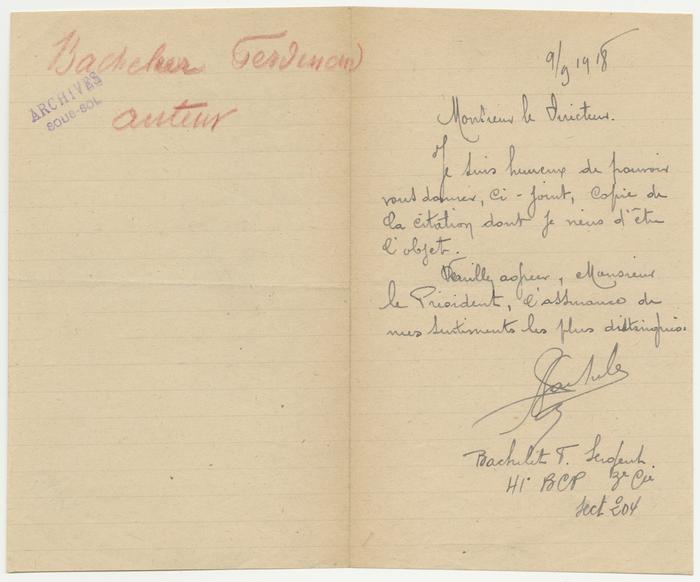 Bachelier Ferdinand
auteur
ARCHIVES
SOUS-SOL
9/9 1918
Monsieur le Directeur.
Je suis heureux de pouvoir
vous donner, ci-joint, copie de
la citation dont je viens d'être
l'objet.
Veuillez agréer, Monsieur
le Président, l'assurance de
mes sentiments les plus distingués.
F. Sergent.
41e BCP 3e Cie
Sect 204